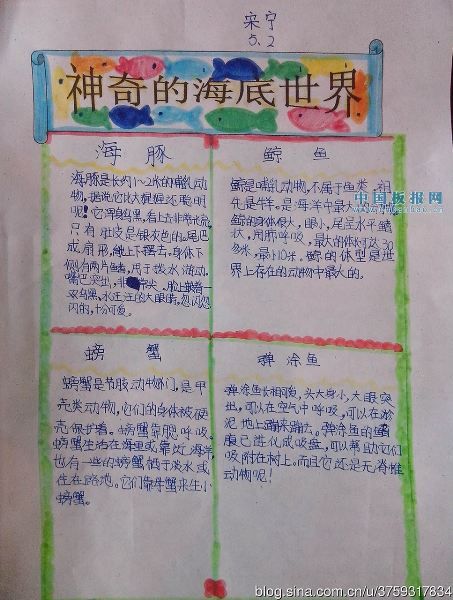 宋宁
5.2
神奇的海底世界
海豚
海豚是长约1~2米的哺乳动
物，据说它比大猩猩还聪明
呢！它浑身乌黑，看上去非常光滑，
只有肚皮是银灰色的。尾巴
成扇形，能上下摆去，身体下
侧有两片鳍，用于拨水游动。
嘴巴突出，非常尖。脸上嵌着一
双乌黑、水汪汪的大眼睛，忽闪忽
闪的，十分可爱。
鲸鱼
鲸是哺乳动物，不属于鱼类，祖
先是牛羊。是海洋中最大的动物
鲸的身体很大，眼小，尾呈水平鳍
状，用肺呼吸，最大的体长可达30
多米，最小10米。鲸的体型是世
界上存在的动物中最大的。
中国板报网
螃蟹
螃蟹是节肢动物门，是甲
壳类动物，它们的身体被硬
壳保护着。螃蟹靠腮呼吸。
螃蟹生活在海里或靠近海洋
也有一些的螃蟹栖于淡水或
住在陆地。它们靠母蟹来生小
螃蟹。
弹涂鱼
弹涂鱼长相可爱，头大身小，大眼突
出，可以在空气中呼吸，可以在淤
泥地上蹦来蹦去。弹涂鱼的鱼
腹已进化成吸盘，可以帮助它们
吸附在树上。而且它还是无脊椎
动物呢！
blog.sina.com.cn/u/3759317834